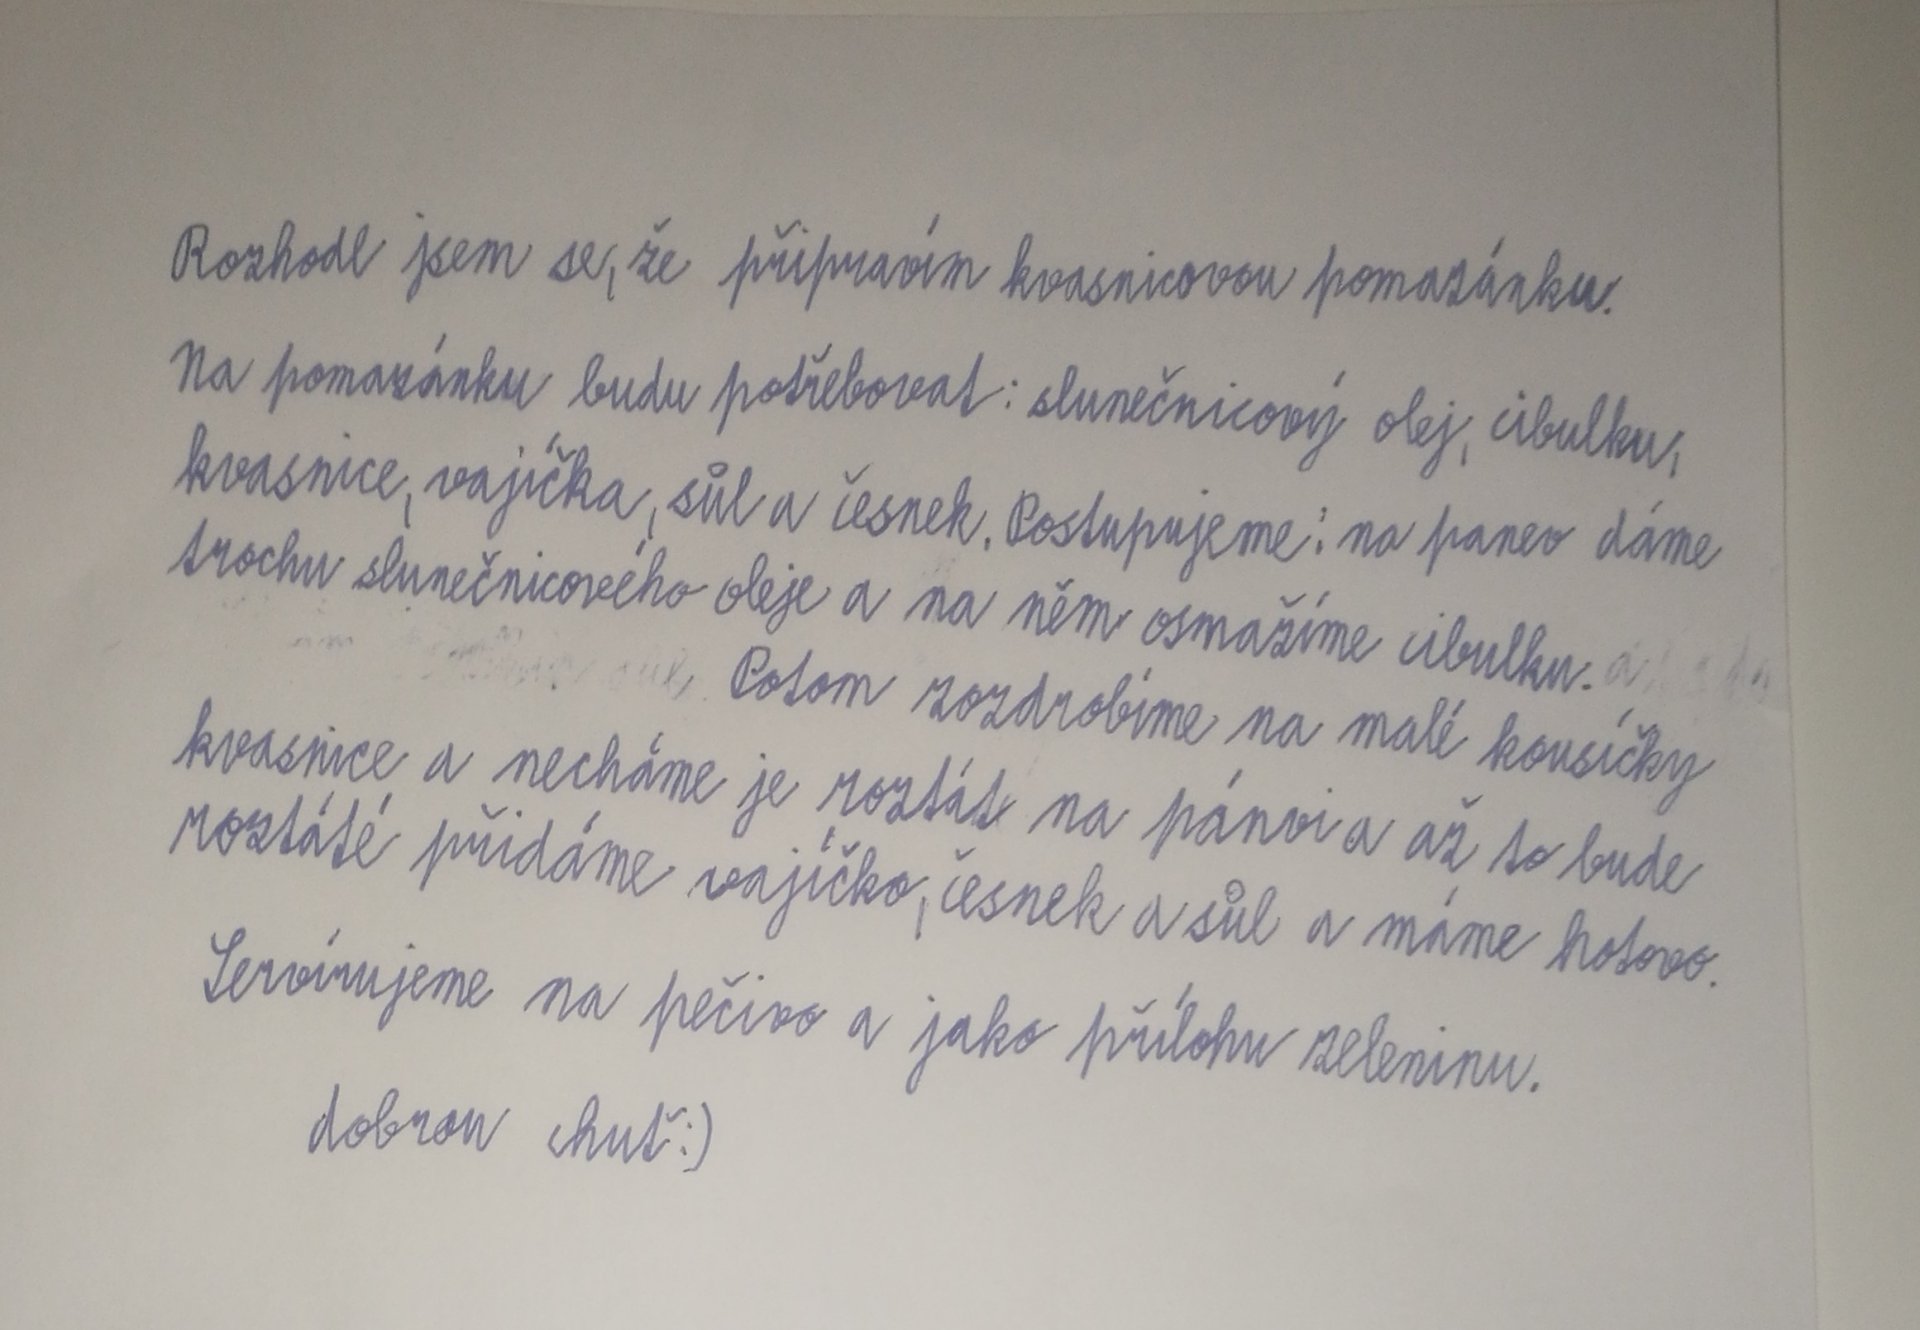 Rozhodl jsem se, že připravím kvasnicovou pomazánku.
Na pomazánku budu potřebovat: slunečnicový olej, cibulku,
kvasnice, vajíčka, sůl a česnek. Postupujeme: na panev dáme
trochu slunečnicového oleje a na něm osmažíme cibulku.
Potom rozdrobíme na malé kousíčky
kvasnice a necháme je roztát na pánvi a až to bude
roztáté přidáme vajíčko, česnek a sůl a máme hotovo.
Servírujeme na pečivo a jako přílohu zeleninu.
dobrou chuť:)